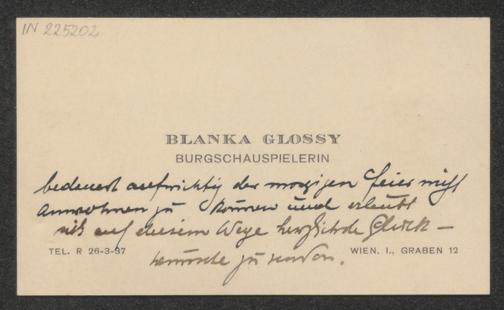 IN 225202
BLANKA GLOSSY
BURGSCHAUSPIELERIN
bedauert aufrichtig der morgigen Feier nicht
anwohnen zu können und erlaubt
sich auf diesem Wege herzlichste Glück-
TEL. R 26-3-37
WIEN, I., GRABEN 12
wünsche zu senden.